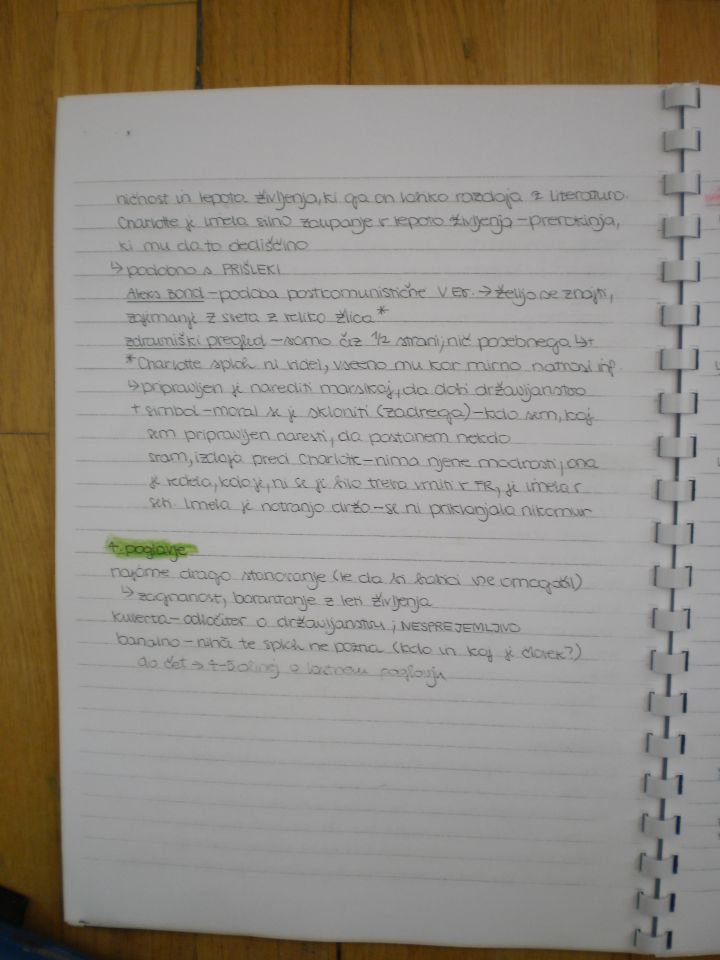 ničnost in lepota življenja, ki ga on lahko razdaja z literaturo.
Charlotte je imela silno zaupanje v lepoto življenja - prerokinja,
ki mu da to dediščino
↳ podobno s PRIŠLEKI
Aleks Bond - podoba postkomunistične V Er. → želijo se znajti,
zajimanje z sveta z veliko žlico*
zdravniški pregled - samo čez 1/2 strani, nič posebnega ↳+
*Charlotte sploh ni videl, vseeno mu kar mirno natrosi inf.
↳ pripravljen je narediti marsikaj, da dobi državljanstvo
+ simbol - moral se je skloniti (zadrega) - kdo sem, kaj
sem pripravljen naresti, da postanem nekdo
sram, izdaja pred Charlotte - nima njene modrosti, ona
je vedela, kdo je, ni se ji bilo treba vrniti v FR, je imela v
seb. Imela je notranjo držo - se ni priklanjala nikomur
4. poglavje
najame drago stanovanje (le da bi bančni omogočil)
↳ zagnanost, barantanje z leti življenja
kuverta - odločitev o državljanstvu; NESPREJEMLJIVO
banalno - nihče te sploh ne pozna (kdo in kaj je človek?)
do čet → 4-5 o lastnem poglavju